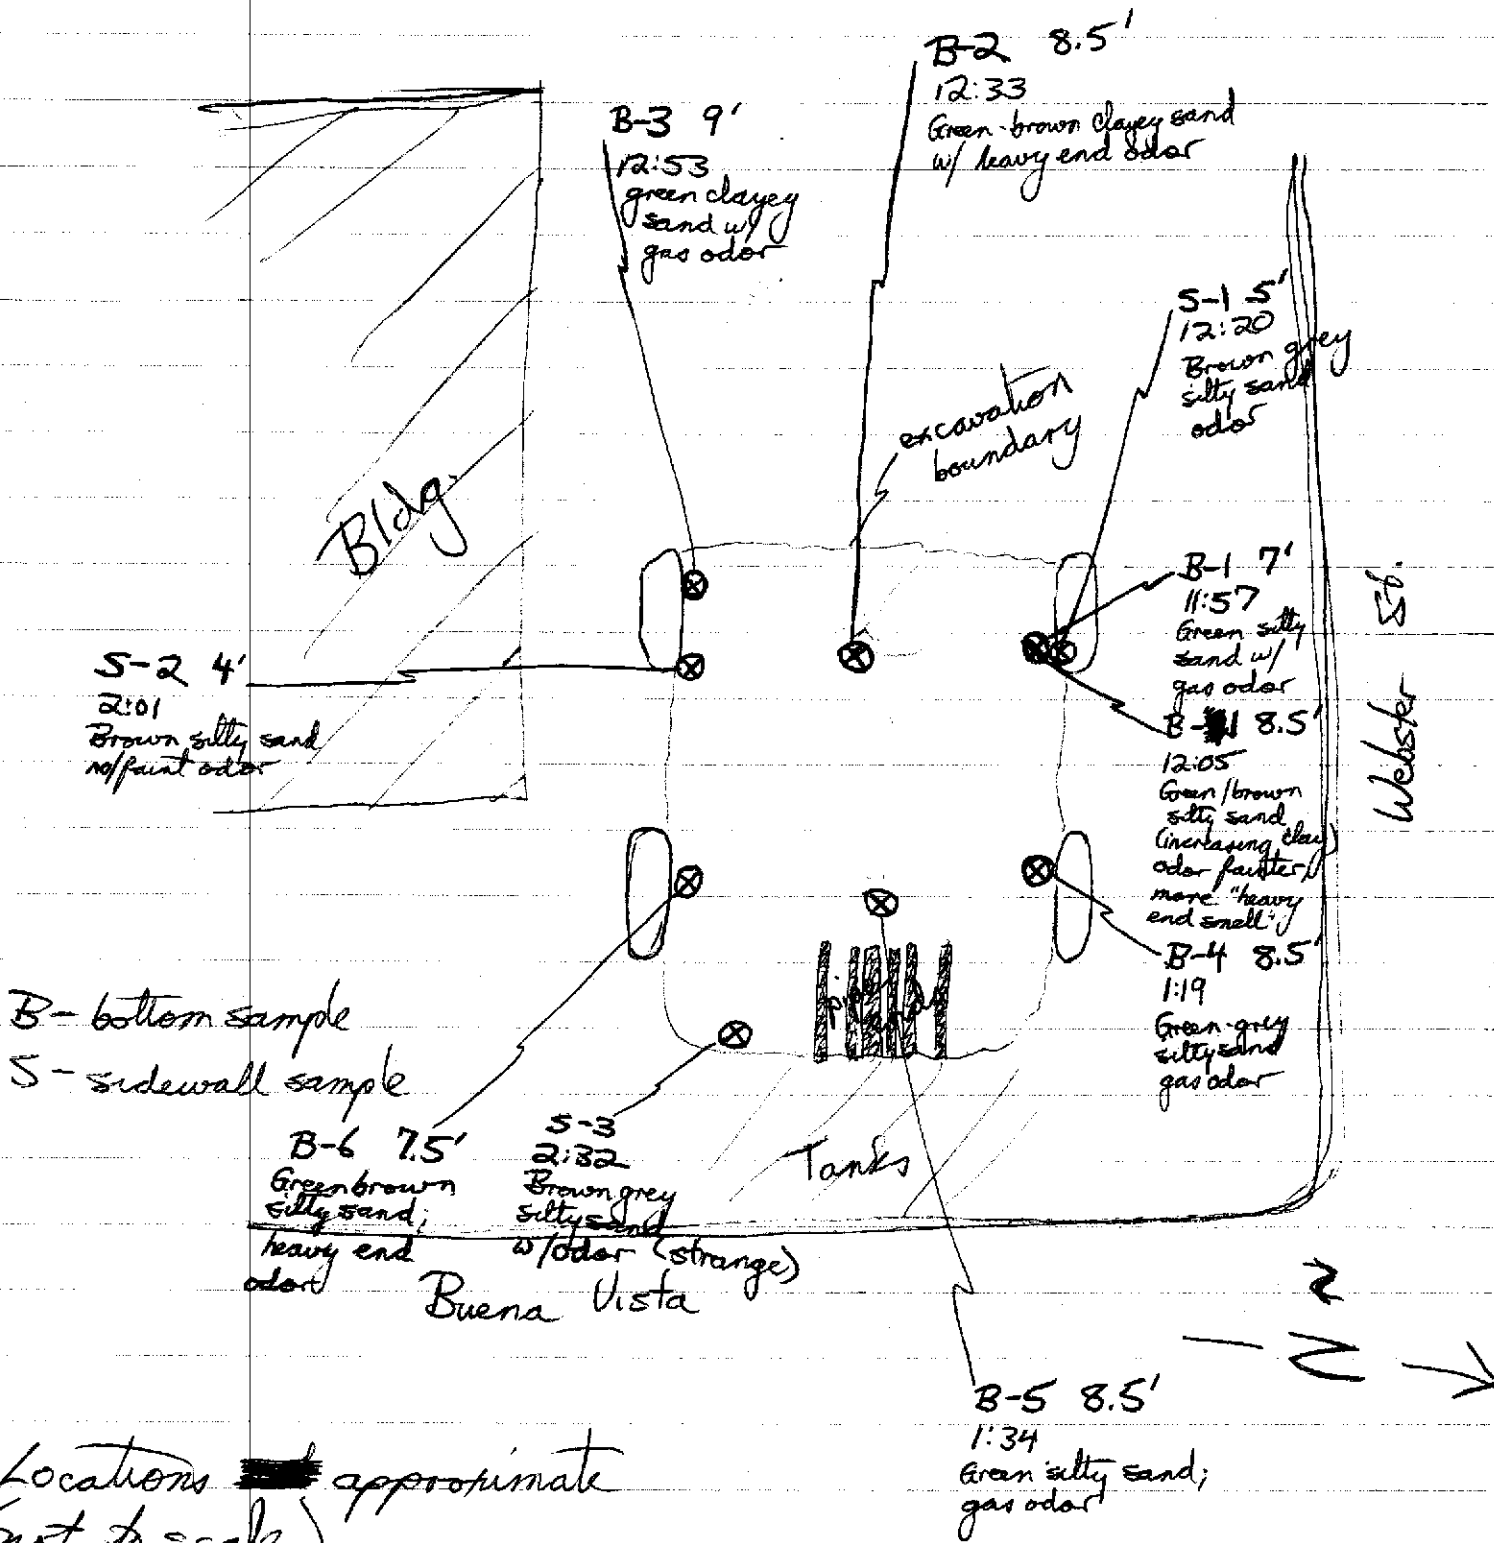 B-2 8.5'
12:33
Green-brown clayey sand
w/ heavy end odor
B-3 9'
12:53
green clayey
sand w/
gas odor
S-1 5'
12:20
Brown grey
silty sand
odor
excavation
boundary
Bldg.
B-1 7'
11:57
Green silty
sand w/
gas odor
Webster St.
S-2 4'
2:01
Brown silty sand
no/faint odor
B-1 8.5'
12:05
Green/brown
silty sand
(increasing clay)
odor fainter,
more "heavy
end smell"
B-4 8.5'
1:19
Green-grey
silty sand
gas odor
B- bottom sample
S- sidewall sample
B-6 7.5'
Green brown
silty sand;
heavy end
odor
S-3
2:32
Brown grey
silty sand
w/odor (strange)
Tanks
Buena Vista
N
B-5 8.5'
1:34
Green silty sand;
gas odor
Locations approximate
(not to scale)